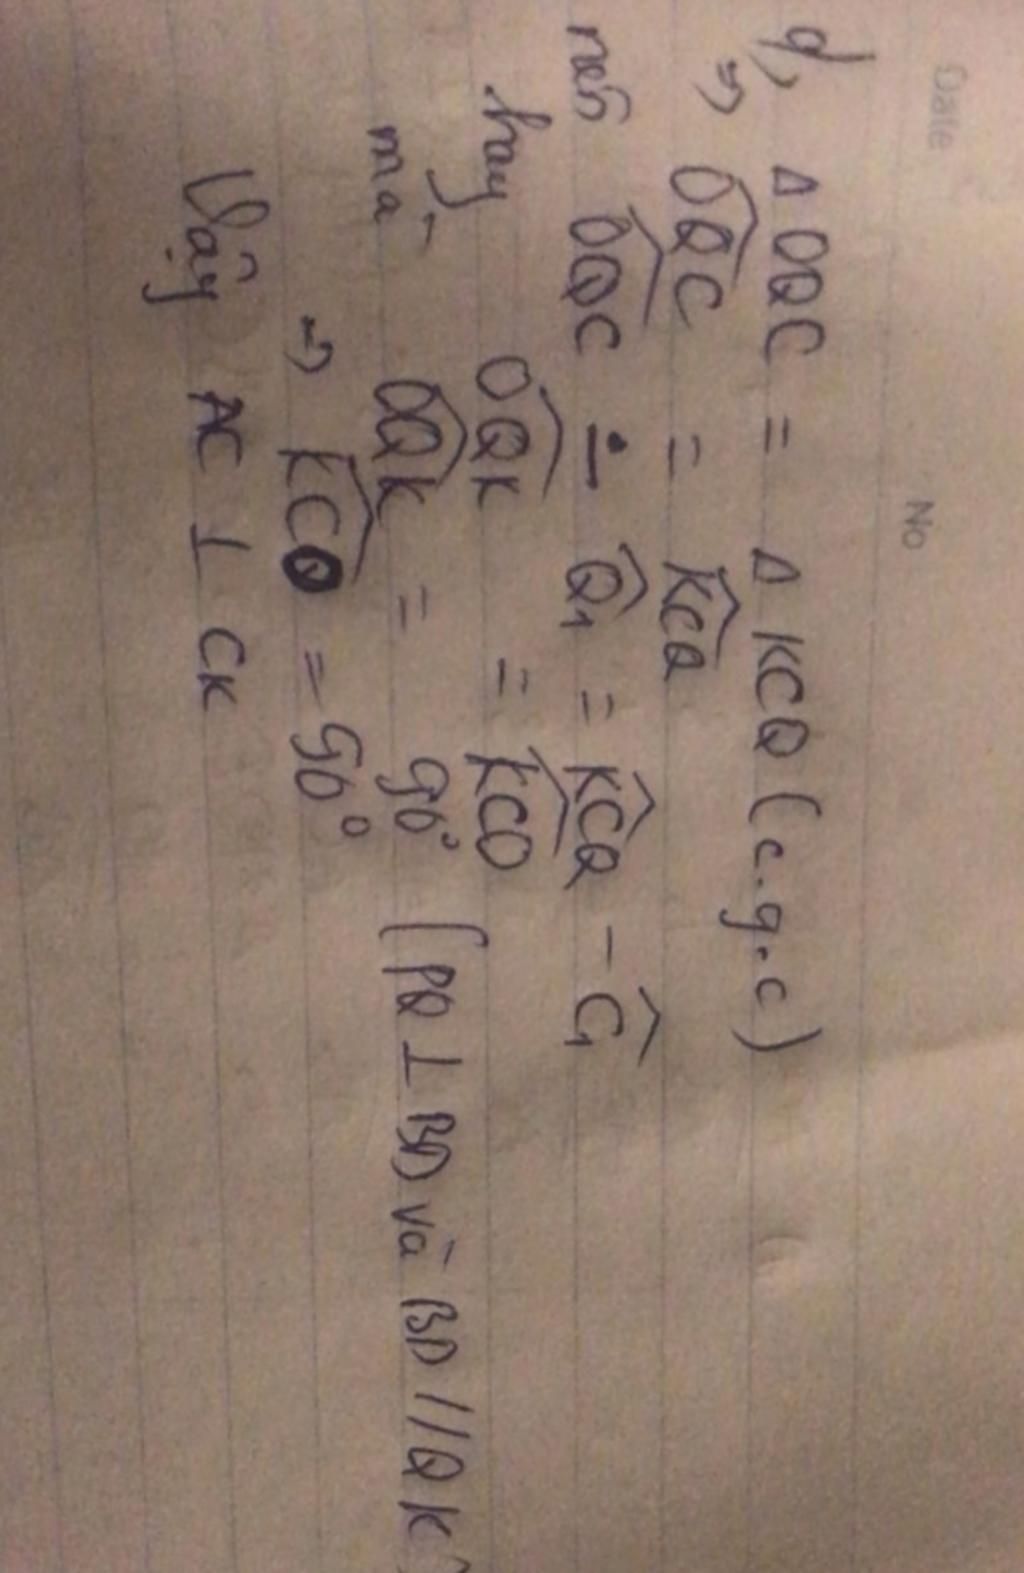 Date No
d, Δ OQC = Δ KCQ (c.g.c)
=> \widehat{OQC} = \widehat{KCQ}
nên \widehat{OQC} - \widehat{Q_1} = \widehat{KCQ} - \widehat{C_1}
hay \widehat{OQK} = \widehat{KCO}
mà \widehat{OQK} = 90° (PQ ⊥ BD và BD // QK)
=> \widehat{KCO} = 90°
Vậy AC ⊥ CK